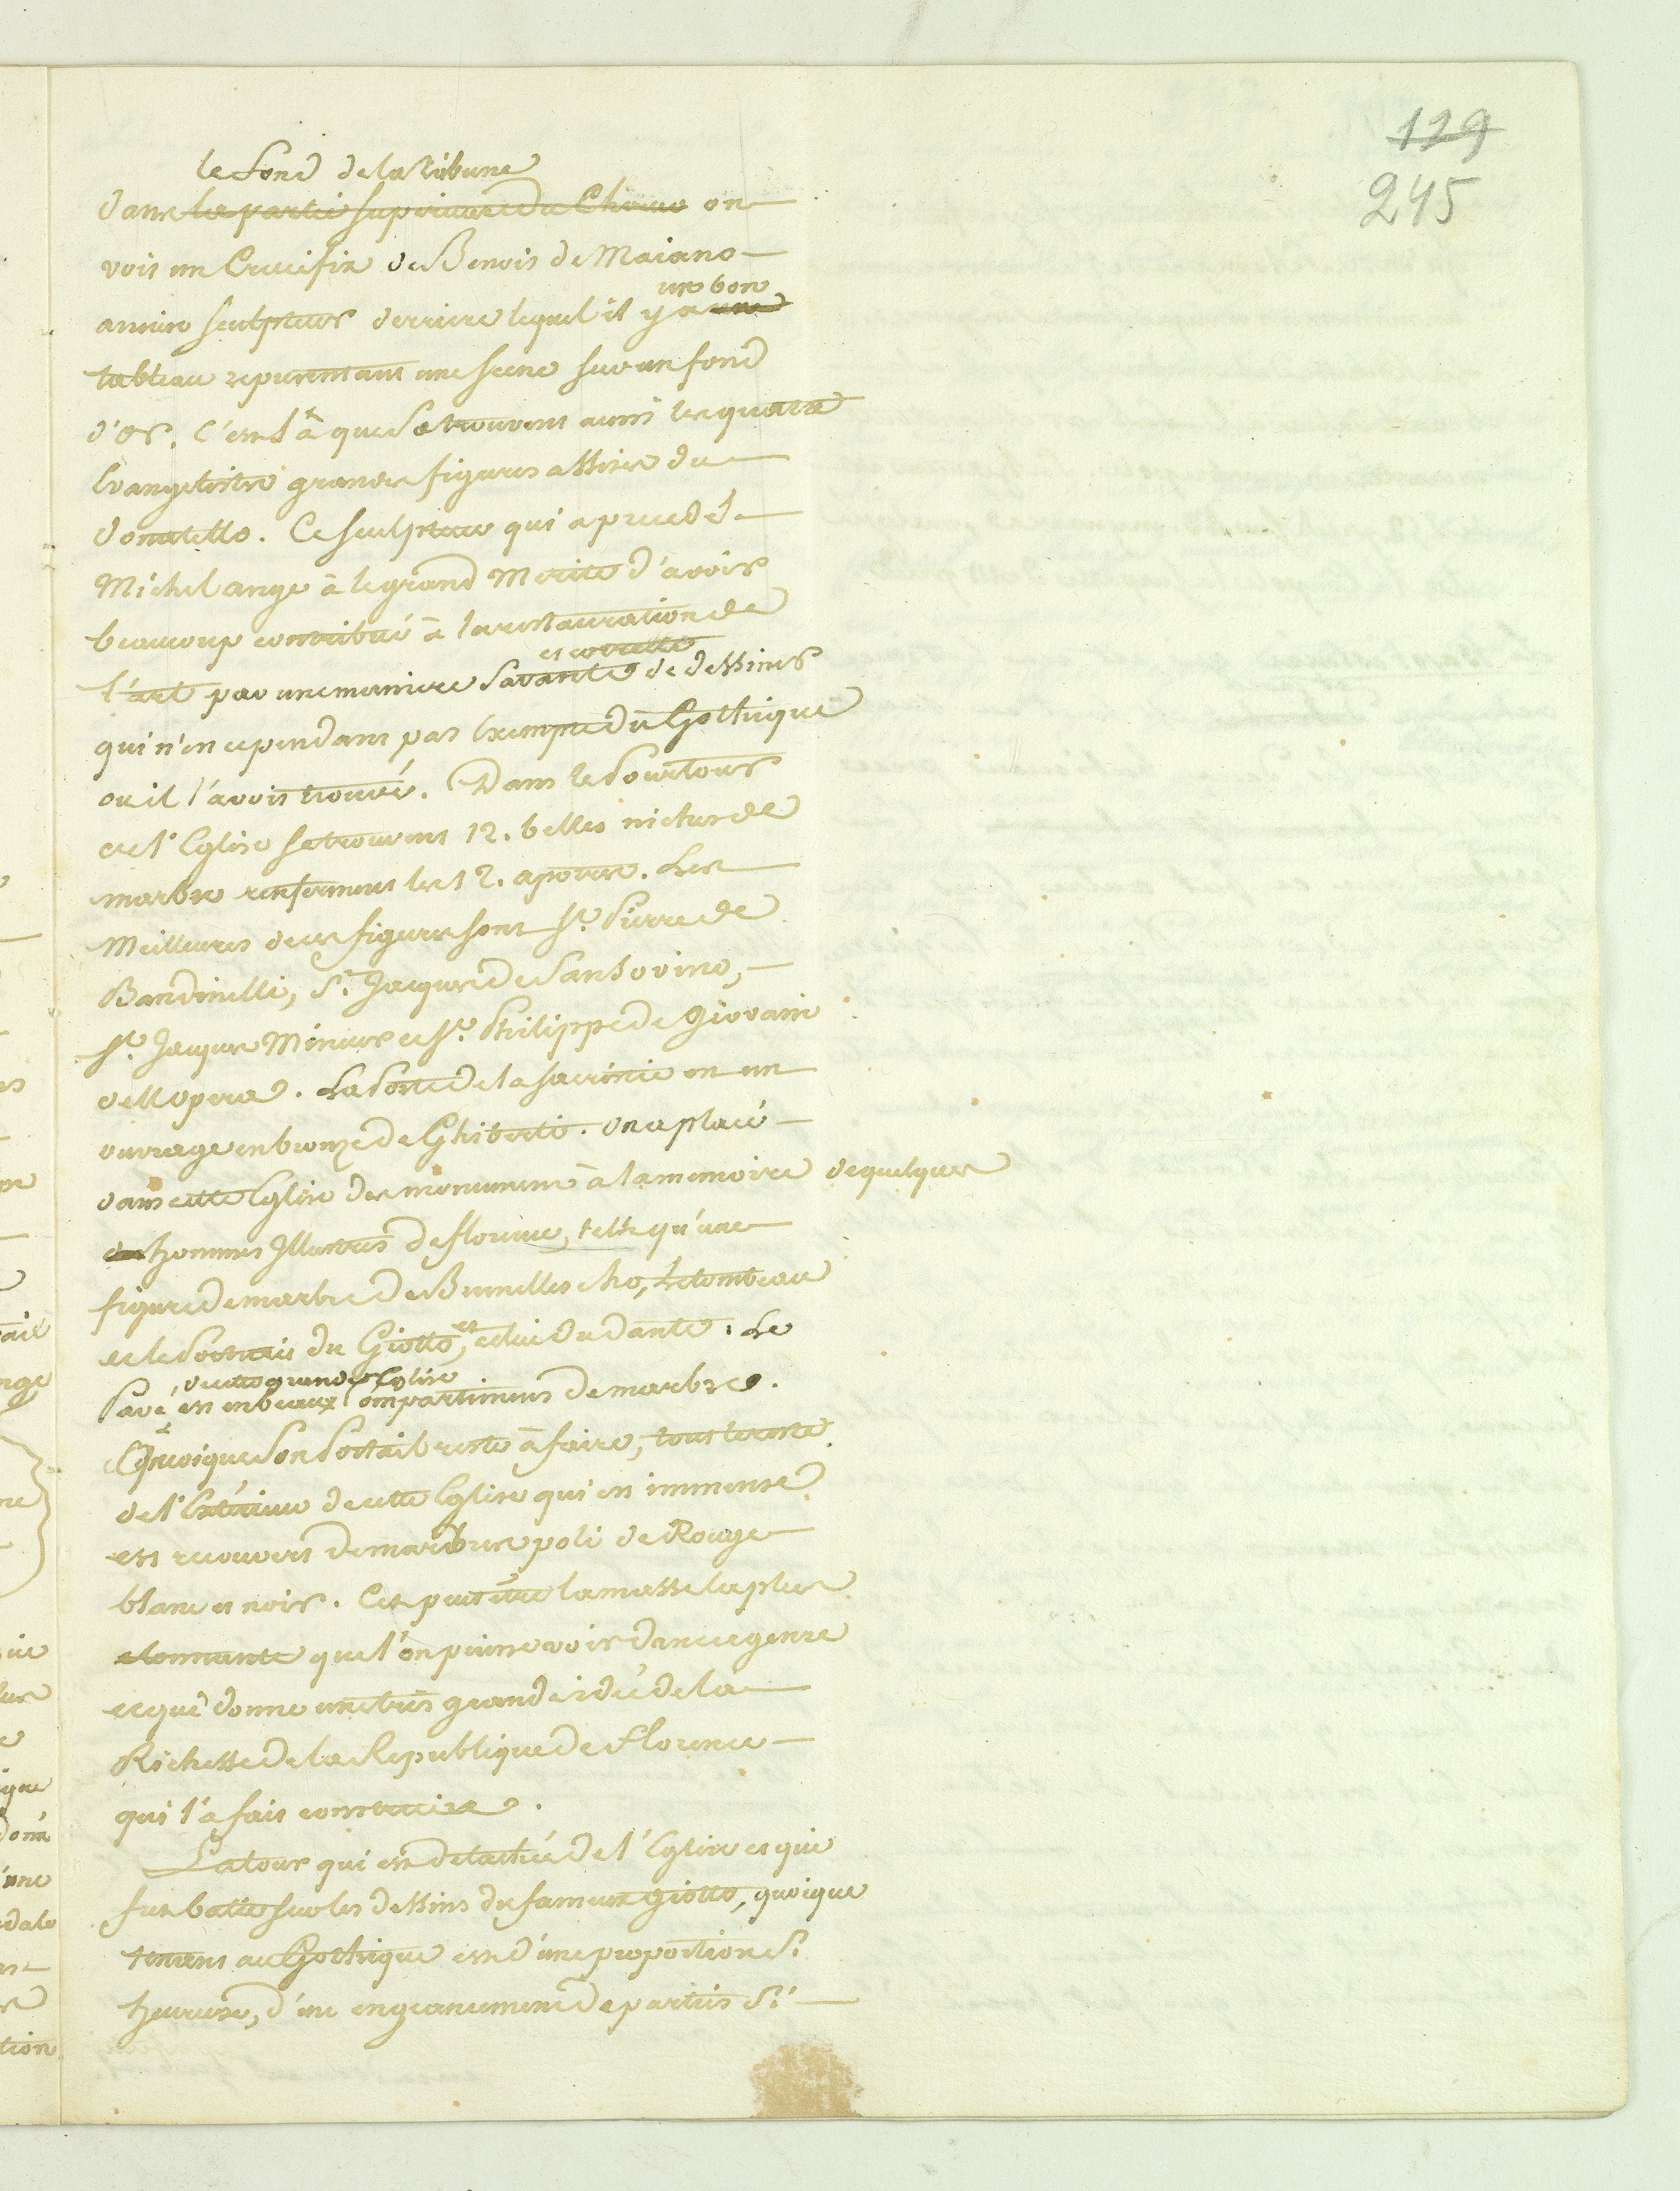 129
245
le fond de la Tribune
dans les partie superieure du Choeur on
voit un Crucifix de Benoit de Maiano
un bon
ancien sculpteur derriere lequel il y a une
tableau representant une scene sur un fond
d'or. C'est là que se trouvent aussi les quatre
Evangelistes grandes figures assises du
Donatello. Ce sculpteur qui a precedé
Michel ange à le grand Merite d'avoir
beaucoup contribué à la restauration de
et correcte
l'art par une maniere savante de dessiner
qui n'en cependant pas exempte du Gothique
ou il l'avoit trouvé. Dans le Pourtour
de l'Eglise se trouvent 12. belles niches de
marbre renfermant les 12. apotres. Les
Meilleures de ces figures sont St. Pierre de
Bandinelli, St. Jacques de Sansovino,
St. Jacques Mineur et St. Philippe de Giovani
dell Opera. La Porte de la sacristie est un
ouvrage en bronze de Ghiberti. On a placé
dans cette Eglise des monumens à la memoire de quelques
hommes Illustres de florence, telle qu'une
figure de marbre de Brunellescho, le tombeau
et le Portrait du Giotto, et celui du Dante. Le
de cette grande Eglise
Pavé est en beaux Compartimens de marbre.
Quoique son Portail reste à faire, tout le reste
de l'Extérieur de cette Eglise qui est immense
est recouvert de marbre poli de Rouge
blanc et noir. C'est peut être la masse la plus
etonnante que l'on puisse voir dans ce genre
et qui donne une très grande idée de la
Richesse de la Republique de Florence
qui l'a fait construire.
La tour qui est detachée de l'Eglise et qui
fut batie sur les dessins du fameux giotto, quoique
tenant au Gothique est d'une proportion si
heureuse, d'un engeancement de parties si